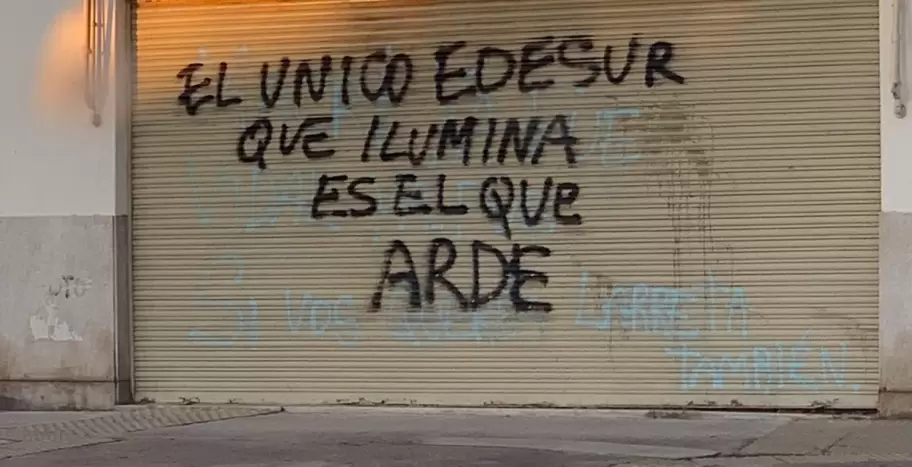 EL UNICO EDESUR
QUE ILUMINA
ES EL QUE
ARDE
Y VOS LARRETA
TAMBIÉN